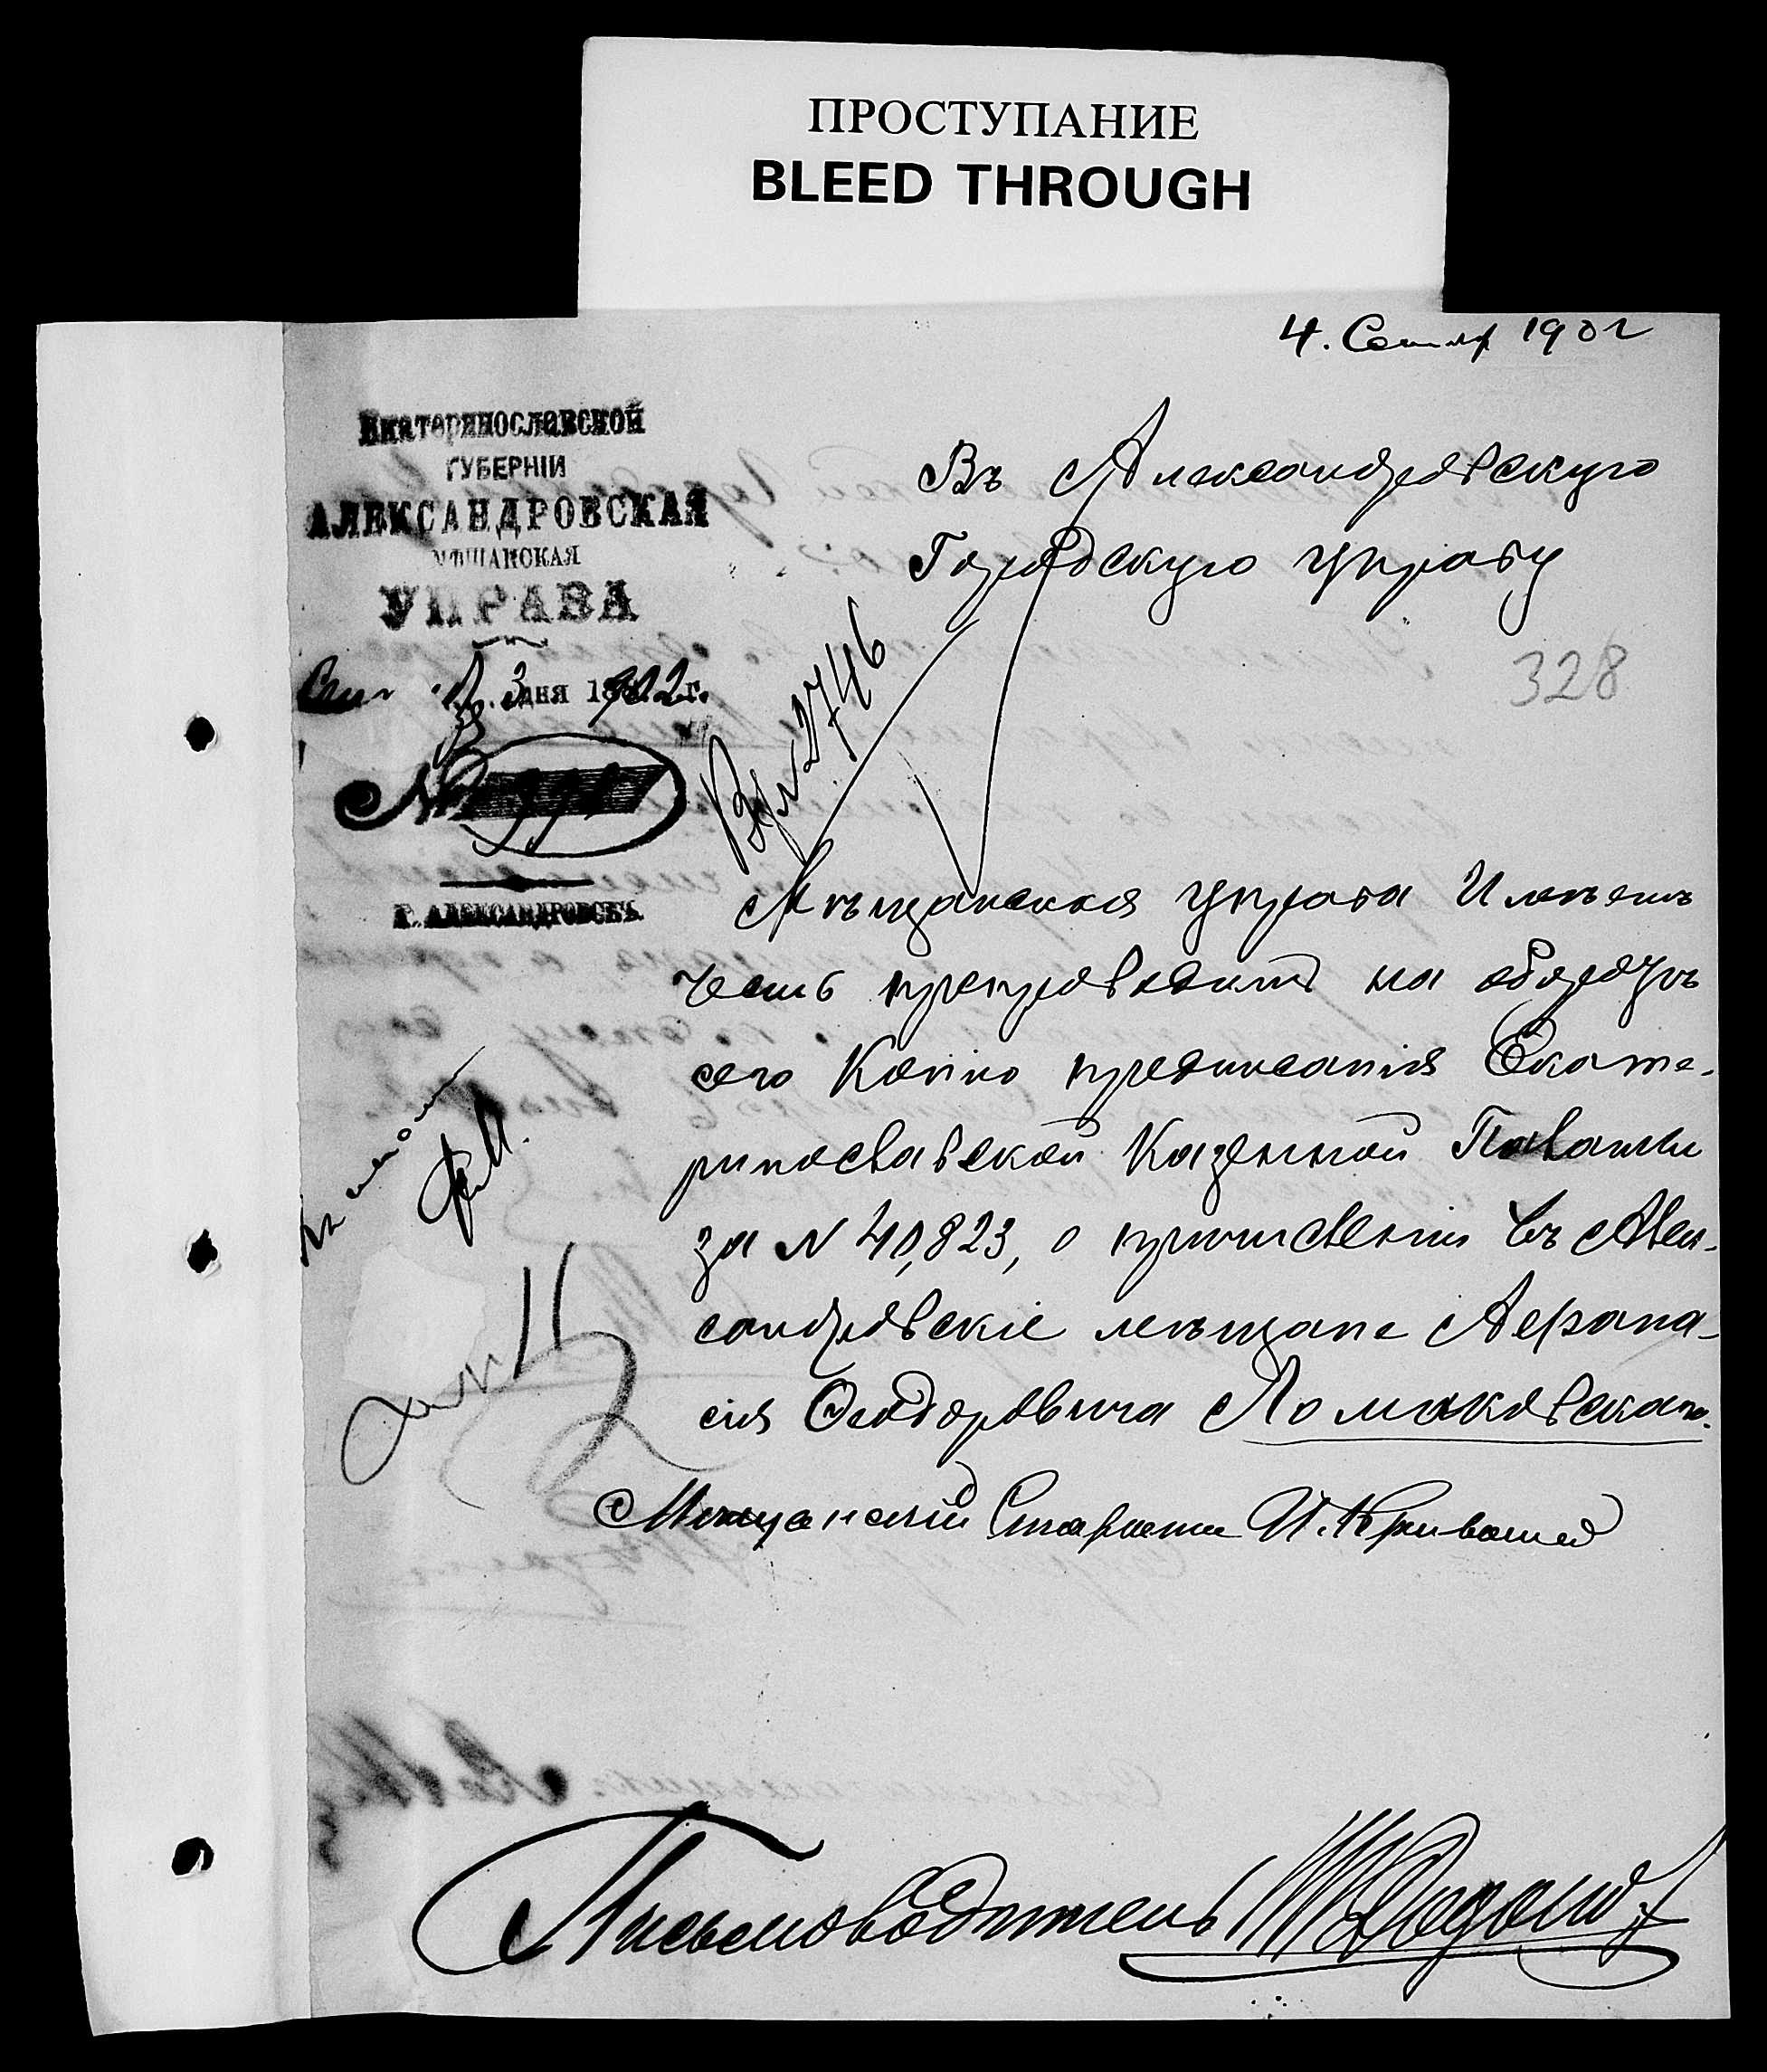 ПРОСТУПАНИЕ
BLEED THROUGH
4. Сентяр 1902
Екатеринославской
ГУБЕРНІИ
АЛЕКСАНДРОВСКАЯ
МѢЩАНСКАЯ
УПРАВА
Сент 3 дня 1902 г.
№
Г. АЛЕКСАНДРОВСКЪ
Вх № 2746
328
Въ Александровскую
Городскую управу
Мѣщанская управа Имѣетъ
честь препроводить на оборотѣ
сего Копію предписанія Екате-
ринославской Казенной Палаты
за № 40,823, о причисленіи въ Алек-
сандровскіе мѣщане Афана-
сія Феодоровича Ломаковскаго.
Мѣщанскій Староста И. Кривошея
Письмоводитель